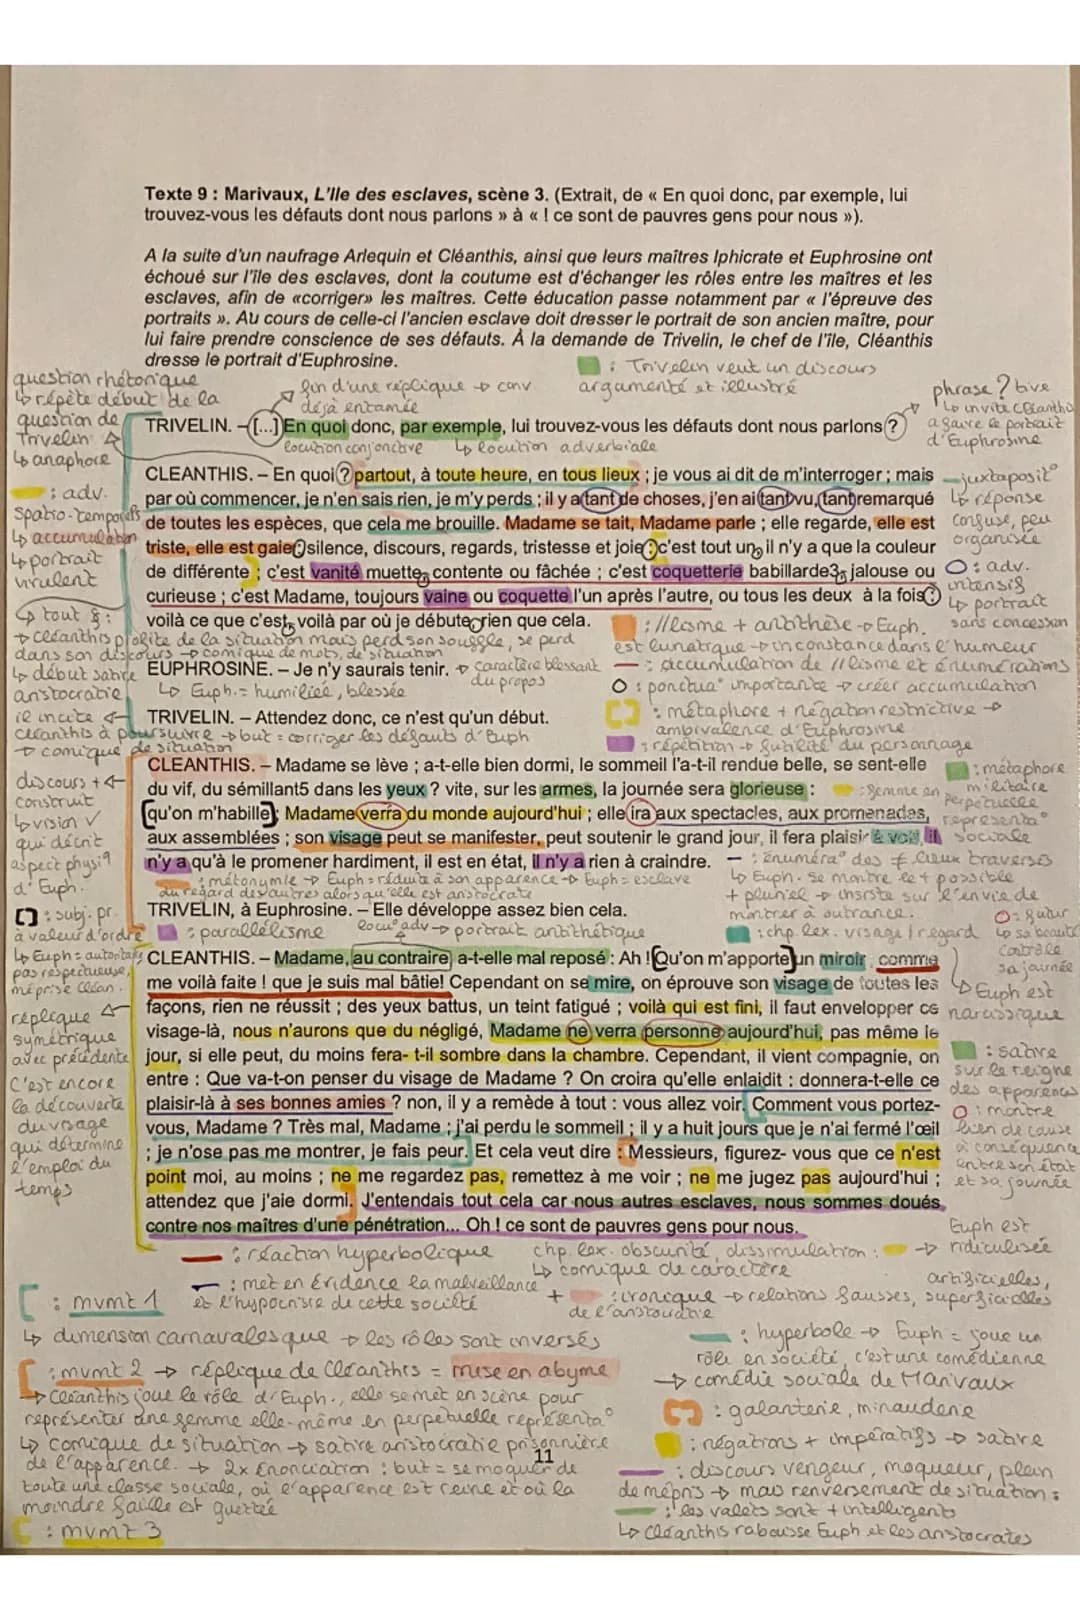 Texte 9 : Marivaux, L'Ile des esclaves, scène 3. (Extrait, de « En quoi donc, par exemple, lui
trouvez-vous les défauts dont nous parlons » à « ! ce sont de pauvres gens pour nous »).
A la suite d'un naufrage Arlequin et Cléanthis, ainsi que leurs maîtres Iphicrate et Euphrosine ont
échoué sur l'île des esclaves, dont la coutume est d'échanger les rôles entre les maîtres et les
esclaves, afin de «corriger» les maîtres. Cette éducation passe notamment par « l'épreuve des
portraits ». Au cours de celle-ci l'ancien esclave doit dresser le portrait de son ancien maître, pour
lui faire prendre conscience de ses défauts. À la demande de Trivelin, le chef de l'île, Cléanthis
dresse le portrait d'Euphrosine.
: Trivelin veut un discours
argumenté et illustré
question rhétorique
↳ répète début de la
question de
Trivelin
↳ anaphore
fin d'une réplique → conv.
déjà entamée
phrase ? tive
↳ invite Cléanthis
a faire le portrait
d'Euphrosine
TRIVELIN. – [...] En quoi donc, par exemple, lui trouvez-vous les défauts dont nous parlons ?
locution conjonctive ↳ locution adverbiale
CLEANTHIS. – En quoi ? partout, à toute heure, en tous lieux ; je vous ai dit de m'interroger ; mais
par où commencer, je n'en sais rien, je m'y perds ; il y a tant de choses, j'en ai tant vu, tant remarqué
de toutes les espèces, que cela me brouille. Madame se tait, Madame parle ; elle regarde, elle est
triste, elle est gaie : silence, discours, regards, tristesse et joie : c'est tout un, il n'y a que la couleur
de différente ; c'est vanité muette, contente ou fâchée ; c'est coquetterie babillarde3, jalouse ou
curieuse ; c'est Madame, toujours vaine ou coquette l'un après l'autre, ou tous les deux à la fois :
voilà ce que c'est, voilà par où je débute, rien que cela.
: adv.
spatio-temporels
↳ accumulation
↳ portrait
virulent
juxtaposit°
↳ réponse
confuse, peu
organisée
: adv.
intensifs
↳ portrait
sans concession
↳ tout § :
→ Cléanthis profite de la situation mais perd son souffle, se perd
dans son discours → comique de mots, de situation
↳ début satire
aristocratie
: //lisme + antithèse → Euph.
est lunatique → inconstance dans l'humeur
: accumulation de //lisme et énumérations
: ponctua° importante → créer accumulation
: métaphore + négation restrictive →
ambivalence d'Euphrosine
: répétition → futilité du personnage
EUPHROSINE. – Je n'y saurais tenir. → caractère blessant
du propos
↳ Euph. = humiliée, blessée
TRIVELIN. – Attendez donc, ce n'est qu'un début.
il incite
Cléanthis à poursuivre → but = corriger les défauts d'Euph
→ comique de situation
CLEANTHIS. – Madame se lève ; a-t-elle bien dormi, le sommeil l'a-t-il rendue belle, se sent-elle
du vif, du sémillant5 dans les yeux ? vite, sur les armes, la journée sera glorieuse :
qu'on m'habille ; Madame verra du monde aujourd'hui ; elle ira aux spectacles, aux promenades,
aux assemblées ; son visage peut se manifester, peut soutenir le grand jour, il fera plaisir à voir, il
n'y a qu'à le promener hardiment, il est en état, il n'y a rien à craindre.
discours +
construit
↳ vision
qui décrit
aspect physiq
d'Euph.
: métaphore
militaire
: femme en perpétuelle
représenta°
sociale
: énuméra° des ≠ lieux traversés
↳ Euph. se montre le + possible
+ pluriel → insiste sur l'envie de
montrer à outrance.
: métonymie → Euph = réduite à son apparence → Euph = esclave
du regard des autres alors qu'elle est aristocrate
TRIVELIN, à Euphrosine. – Elle développe assez bien cela.
: parallélisme
locu° adv → portrait antithétique
: chp. lex. visage / regard
: subj. pr.
à valeur d'ordre
↳ Euph = autoritaire
pas respectueuse,
méprise Cléan.
: futur
↳ sa beauté
contrôle
sa journée
CLEANTHIS. – Madame, au contraire, a-t-elle mal reposé : Ah ! Qu'on m'apporte un miroir ; comme
me voilà faite ! que je suis mal bâtie! Cependant on se mire, on éprouve son visage de toutes les
façons, rien ne réussit ; des yeux battus, un teint fatigué ; voilà qui est fini, il faut envelopper ce
visage-là, nous n'aurons que du négligé, Madame ne verra personne aujourd'hui, pas même le
jour, si elle peut, du moins fera- t-il sombre dans la chambre. Cependant, il vient compagnie, on
entre : Que va-t-on penser du visage de Madame ? On croira qu'elle enlaidit : donnera-t-elle ce
plaisir-là à ses bonnes amies ? non, il y a remède à tout : vous allez voir. Comment vous portez-
vous, Madame ? Très mal, Madame ; j'ai perdu le sommeil ; il y a huit jours que je n'ai fermé l'œil
; je n'ose pas me montrer, je fais peur. Et cela veut dire : Messieurs, figurez- vous que ce n'est
point moi, au moins ; ne me regardez pas, remettez à me voir ; ne me jugez pas aujourd'hui ;
attendez que j'aie dormi. J'entendais tout cela car nous autres esclaves, nous sommes doués,
contre nos maîtres d'une pénétration... Oh ! ce sont de pauvres gens pour nous.
réplique
symétrique
avec précédente
C'est encore
la découverte
du visage
qui détermine
l'emploi du
temps
↳ Euph est
narcissique
: satire
sur le règne
des apparences
: montre
lien de cause
à conséquence
entre son état
et sa journée
: réaction hyperbolique
chp. lex. obscurité, dissimulation :
→ Euph est
ridiculisée
↳ comique de caractère
: met en évidence la malveillance
et l'hypocrisie de cette société
+ : ironique → relations fausses, superficielles
artificielles,
de l'aristocratie
: mvmt 1
↳ dimension carnavalesque → les rôles sont inversés
: mvmt 2 → réplique de Cléanthis = mise en abyme
→ Cléanthis joue le rôle d'Euph., elle se met en scène pour
représenter une femme elle-même en perpétuelle représenta°
↳ comique de situation → satire aristocratie prisonnière
de l'apparence. → 2x énonciation : but = se moquer de
toute une classe sociale, où l'apparence est reine et où la
moindre faille est guettée
: mvmt 3
11
: hyperbole → Euph = joue un
rôle en société, c'est une comédienne
→ comédie sociale de Marivaux
: galanterie, minauderie
: négations + impératifs → satire
: discours vengeur, moqueur, plein
de mépris → mais renversement de situation :
: les valets sont + intelligents
↳ Cléanthis rabaisse Euph et les aristocrates